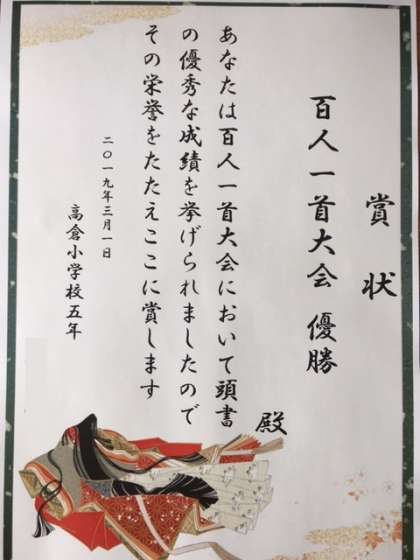 賞状
百人一首大会 優勝
殿
あなたは百人一首大会において頭書
の優秀な成績を挙げられましたので
その栄誉をたたえここに賞します
二〇一九年三月一日
高倉小学校五年